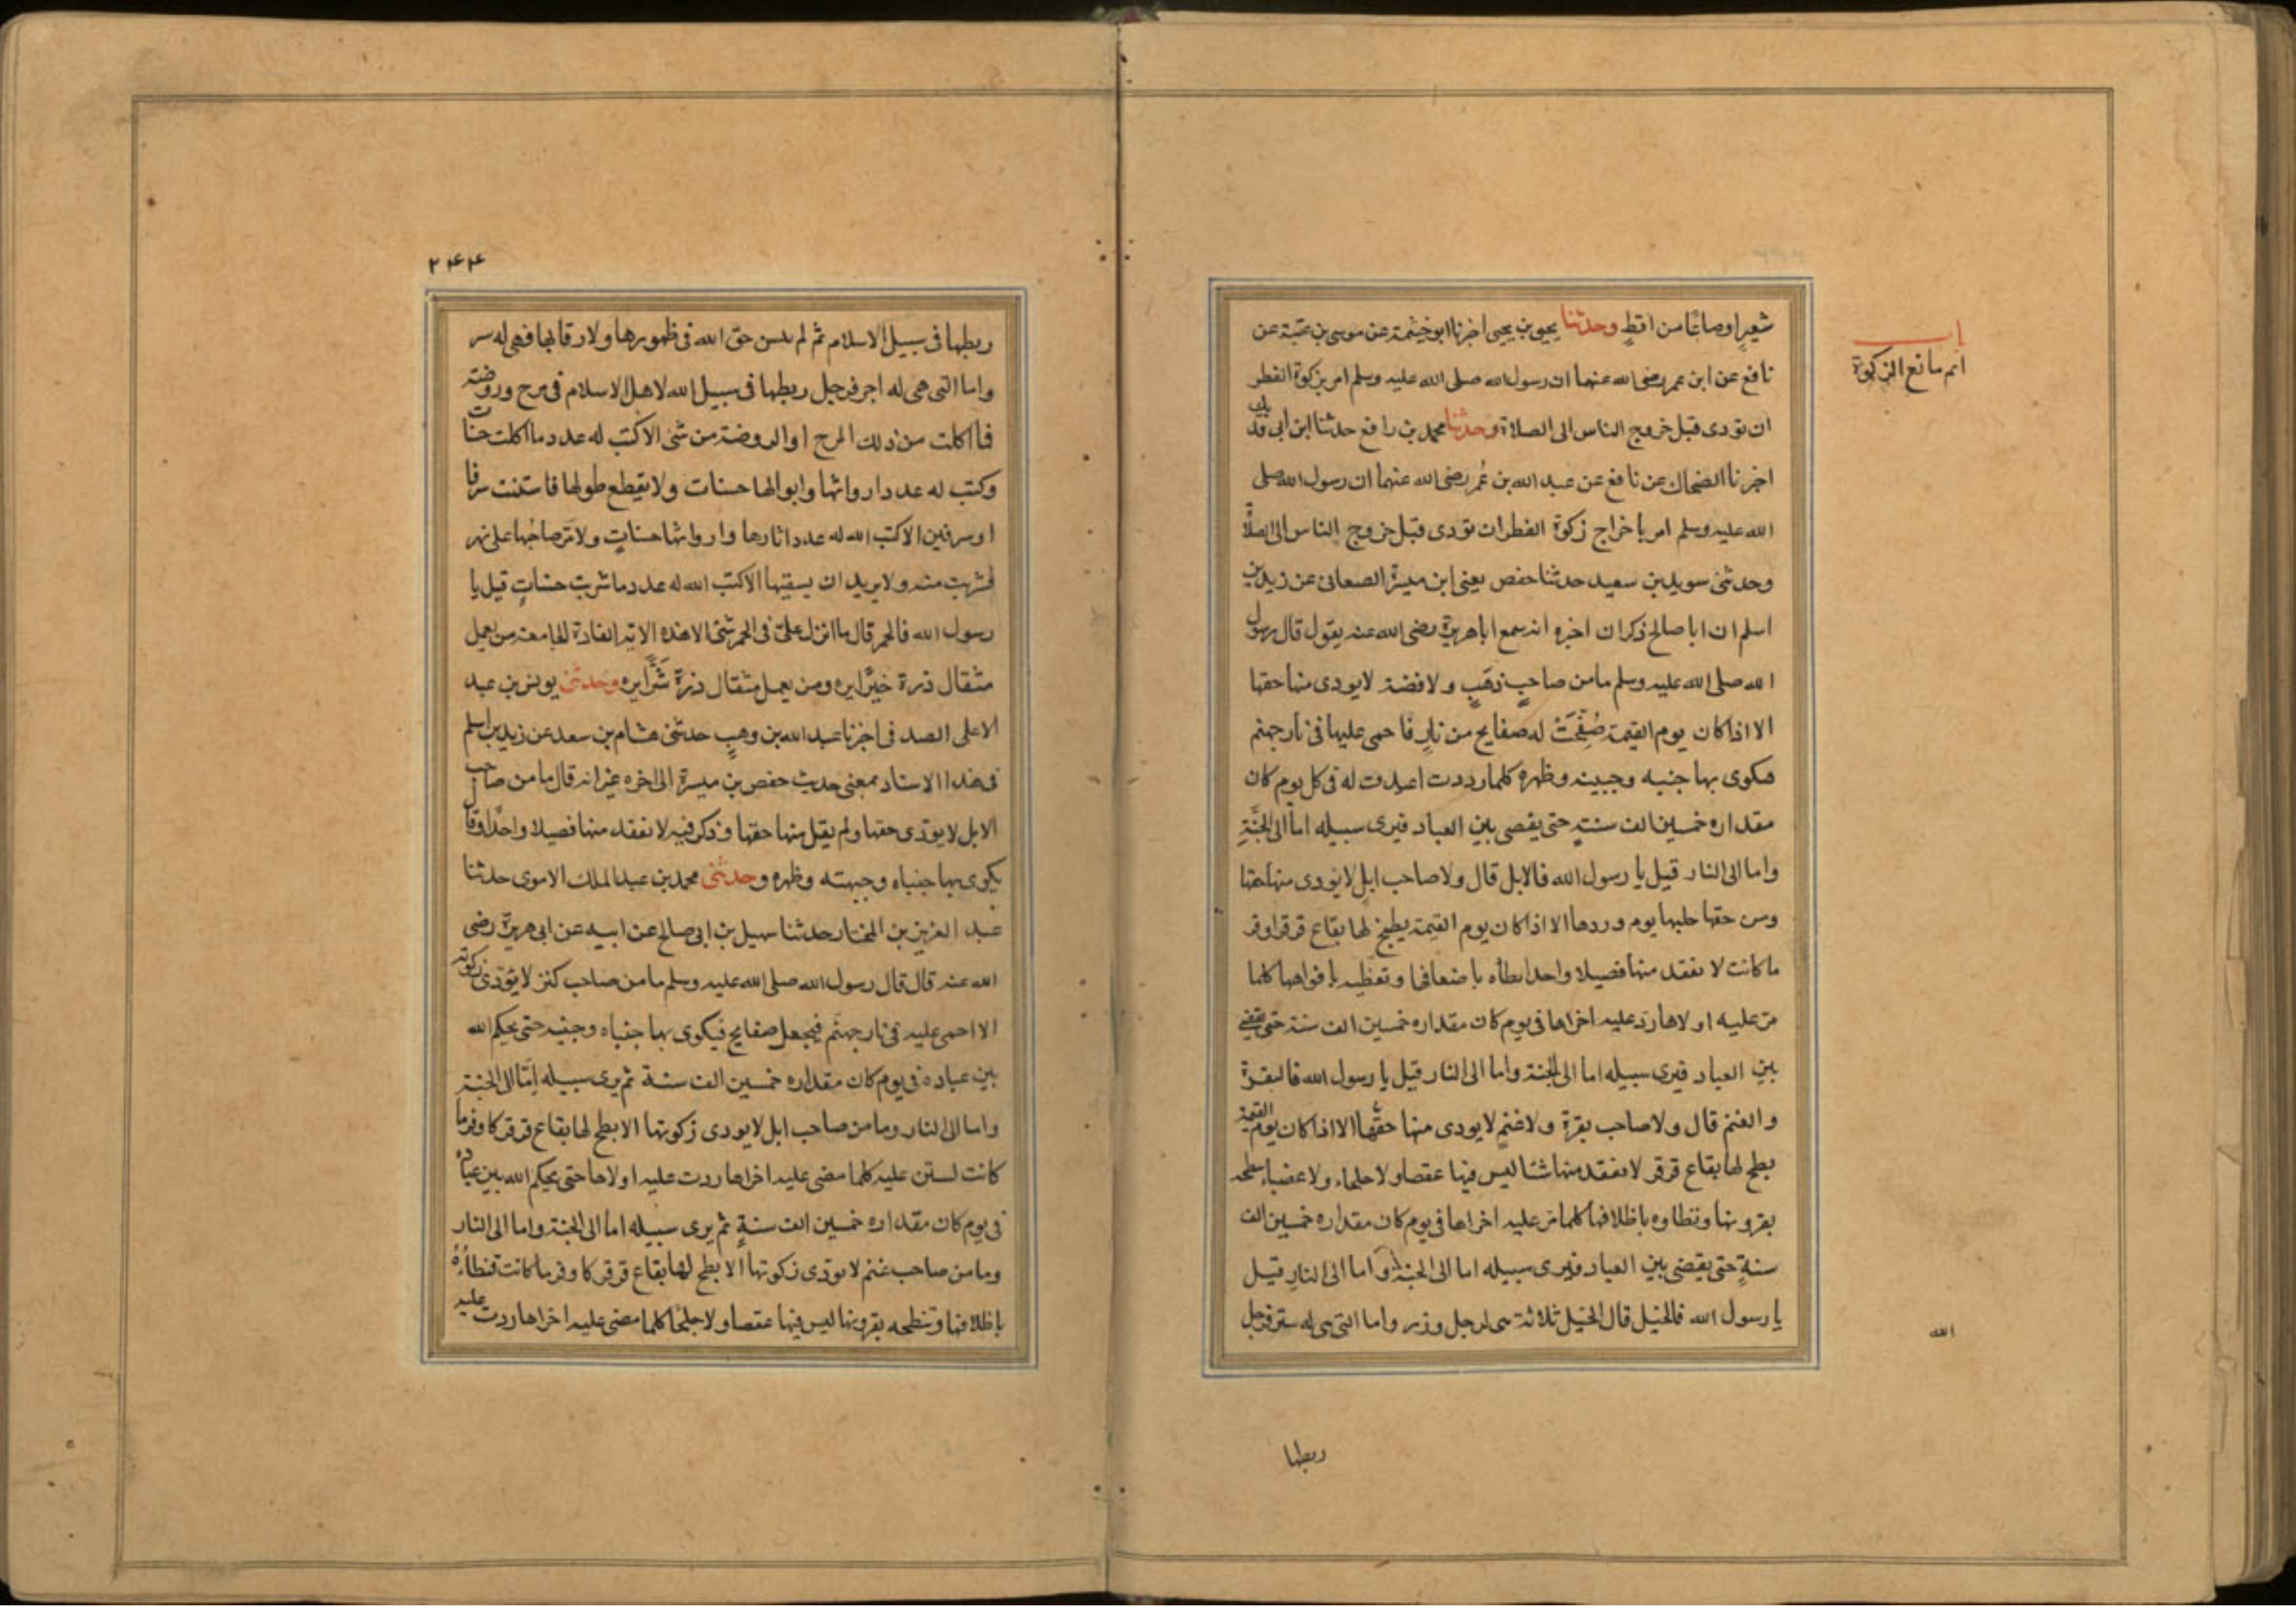 باب
اثم مانع الزكوة
شعيرٍ اوصاعًا من اقطٍ وحدثنا يحيى بن يحيى اخبرنا ابو خيثمة عن موسى بن عقبة عن
نافع عن ابن عمر رضى الله عنهما ان رسول الله صلى الله عليه وسلم امر بزكوة الفطر
ان تؤدى قبل خروج الناس الى الصلاة وحدثنا محمد بن رافع حدثنا ابن ابى فديك
اخبرنا الضحاك عن نافع عن عبد الله بن عُمر رضى الله عنهما ان رسول الله صلى
الله عليه وسلم امر باخراج زكوة الفطر ان تؤدى قبل خروج الناس الى الصلاة
وحدثنى سويد بن سعيد حدثنا حفص يعنى ابن ميسرة الصعانى عن زيد بن
اسلم ان ابا صالح ذكران اخبره انه سمع ابا هريرة رضى الله عنه يقول قال رسول
الله صلى الله عليه وسلم ما من صاحبٍ ذهَبٍ ولا فضة لايودى منها حقها
الا اذا كان يوم القيمة صُفِّحَتْ له صفايح من نارٍ فاحمى عليها فى نار جهنم
فيكوى بها جنبه وجبينه وظهره كلما رددت اعيدت له فى كل يوم كان
مقداره خمسين الف سنةٍ حتى يقضى بين العباد فيرى سبيله اما الى الجنَّةِ
واما الى النار قيل يا رسول الله فالابل قال ولا صاحب ابلٍ لايودى منها حقها
ومن حقها حلبها يوم وردها الا اذا كان يوم القيمة يطبخ لها بقاع قرقر اوفر
ما كانت لا يفقد منها فصيلا واحدا يطأه باضعافها وتعظيه بافواهها كلما
مرّ عليه اولاها ردّ عليه اخراها فى يوم كان مقداره خمسين الف سنة حتى يقضى
بين العباد فيرى سبيله اما الى الجنة واما الى النار قيل يا رسول الله فالبقرة
والغنم قال ولا صاحب بقرة ولاغنمٍ لايودى منها حقّها الا اذا كان يوم القيمة
بطح لها بقاع قرقر لا يفقد منها شئا ليس فيها عقصا ولا جلحاء ولا عضباء تنطحه
بقرونها وتطاوه باظلافها كلما مرّ عليه اخراها فى يوم كان مقداره خمسين الف
سنةٍ حتى يقضى بين العباد فيرى سبيله اما الى الجنة واما الى النارِ قيل
يا رسول الله فالخيل قال الخيل ثلاثة هى لرجل وزر واما التى هى له ستر فرجل
الله
ربطها
٢٤٤
ربطها فى سبيل الاسلام ثم لم ينس حق الله فى ظهورها ولا رقابها فهى له ستر
واما التى هى له اجر فرجل ربطها فى سبيل الله لاهل الاسلام فى مرج وروضة
فما اكلت من ذلك المرج او الروضة من شئ الا كتب له عدد ما اكلت حسنات
وكتب له عدد ارواثها وابوالها حسنات ولا يقطع طولها فاستنت شرفا
او سرفين الا كتب الله له عدد اثارها وارواثها حسناتٍ ولا مرّ صاحبُها على نهر
فشربت منه ولا يريد ان يسقيها الا كتب الله له عدد ما شربت حسناتٍ قيل يا
رسول الله فالحمر قال ما انزل علىّ فى الحمر شئ الا هذه الاية الفاذة الجامعة من يعمل
مثقال ذرة خيرًا يره ومن يعمل مثقال ذرة شَرًّا يره وحدثنى يونس بن عبد
الاعلى الصدفى اخبرنا عبد الله بن وهبٍ حدثنى هشام بن سعد عن زيد بن اسلم
فى هذا الاسناد بمعنى حديث حفص بن ميسرة الى اخره غير انه قال ما من صاحب
الابل لا يؤدى حقها ولم يقل منها حقها وذكر فيه لا يفقد منها فصيلا واحدًا وقال
يكوى بها جنباه وجبهته وظهره وحدثنى محمد بن عبد الملك الاموى حدثنا
عبد العزيز بن المختار حدثنا سهيل بن ابى صالح عن ابيه عن ابى هريرة رضى
الله عنه قال قال رسول الله صلى الله عليه وسلم ما من صاحب كنز لا يؤدى زكوته
الا احمى عليه فى نار جهنَم فيجعل صفايح فيكوى بها جنباه وجبينه حتى يحكم الله
بين عباده فى يوم كان مقداره خمسين الف سنة ثم يرى سبيله امّا الى الجنة
واما الى النار وما من صاحب ابل لايودى زكوتها الا بطح لها بقاع قرقر كاوفر ما
كانت لستن عليه كلما مضى عليه اخراها ردت عليه اولاها حتى يحكم الله بين عباده
فى يوم كان مقداره خمسين الف سنةٍ ثم يرى سبيله اما الى الجنة واما الى النار
وما من صاحب غنم لا يؤدى زكوتها الا بطح لها بقاع قرقر كاوفر ما كانت فتطأهُ
باظلافها وتنطحه بقرونها ليس فيها عقصا ولا جلحا كلما مضى عليه اخراها ردت عليه